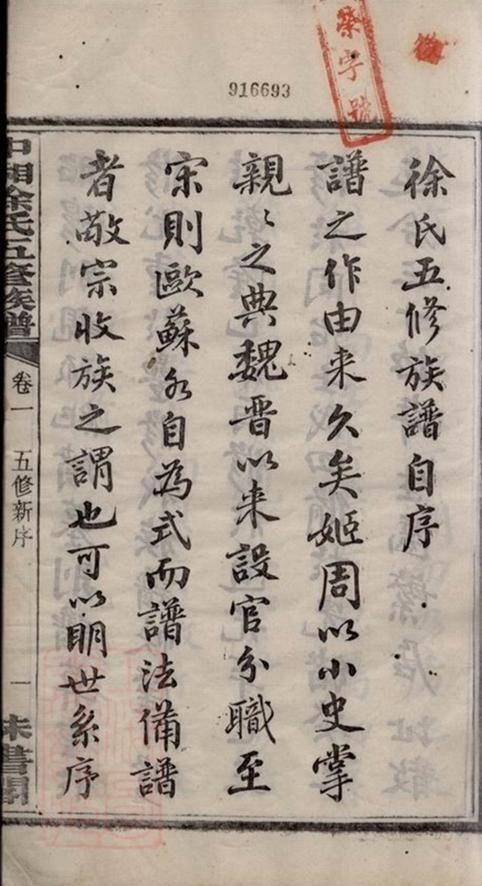 916693
字號
徐氏五修族譜自序
譜之作由来久矣姬周以小史掌
親〻之典魏晋以来設官分職至
宋則歐蘇各自為式而譜法備譜
者敬宗收族之謂也可以明世系序
中湘徐氏五修族譜
卷一
五修新序
一